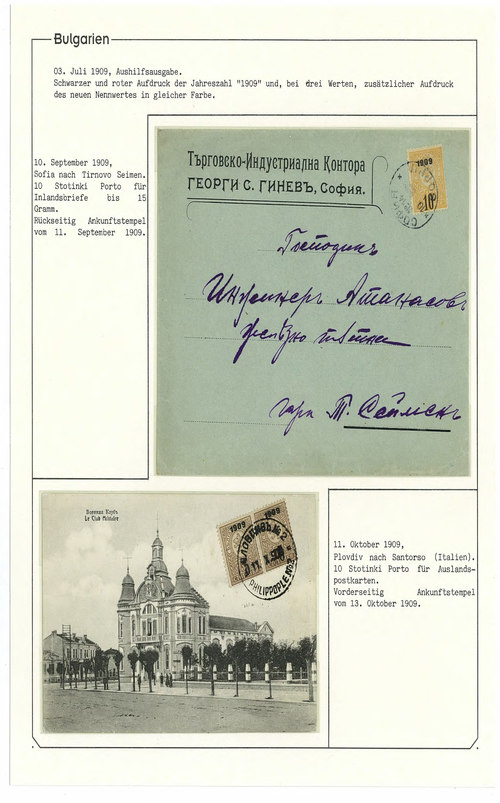 Bulgarien
03. Juli 1909, Aushilfsausgabe.
Schwarzer und roter Aufdruck der Jahreszahl "1909" und, bei drei Werten, zusätzlicher Aufdruck
des neuen Nennwertes in gleicher Farbe.
10. September 1909,
Sofia nach Tirnovo Seimen.
10 Stotinki Porto für
Inlandsbriefe bis 15
Gramm.
Rückseitig Ankunftstempel
vom 11. September 1909.
Търговско-Индустриална Контора
ГЕОРГИ С. ГИНЕВЪ, София.
1909
10
Господинъ
Инженеръ Атанасовъ
гара Т. Сейменъ
Военния Клубъ
Le Club Militaire
1909 1909
PHILIPPOPLE No2
11. Oktober 1909,
Plovdiv nach Santorso (Italien).
10 Stotinki Porto für Auslands-
postkarten.
Vorderseitig Ankunftstempel
vom 13. Oktober 1909.